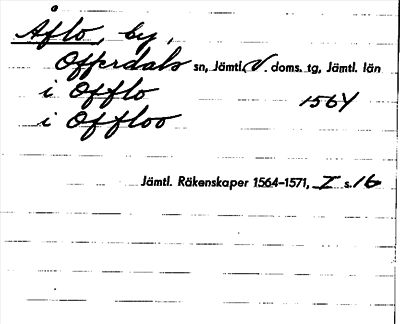 Åflo, by,
Offerdals sn, Jämtl. V. doms. tg, Jämtl. län
i Offlo 1564
i Offloo
Jämtl. Räkenskaper 1564–1571, I s. 16